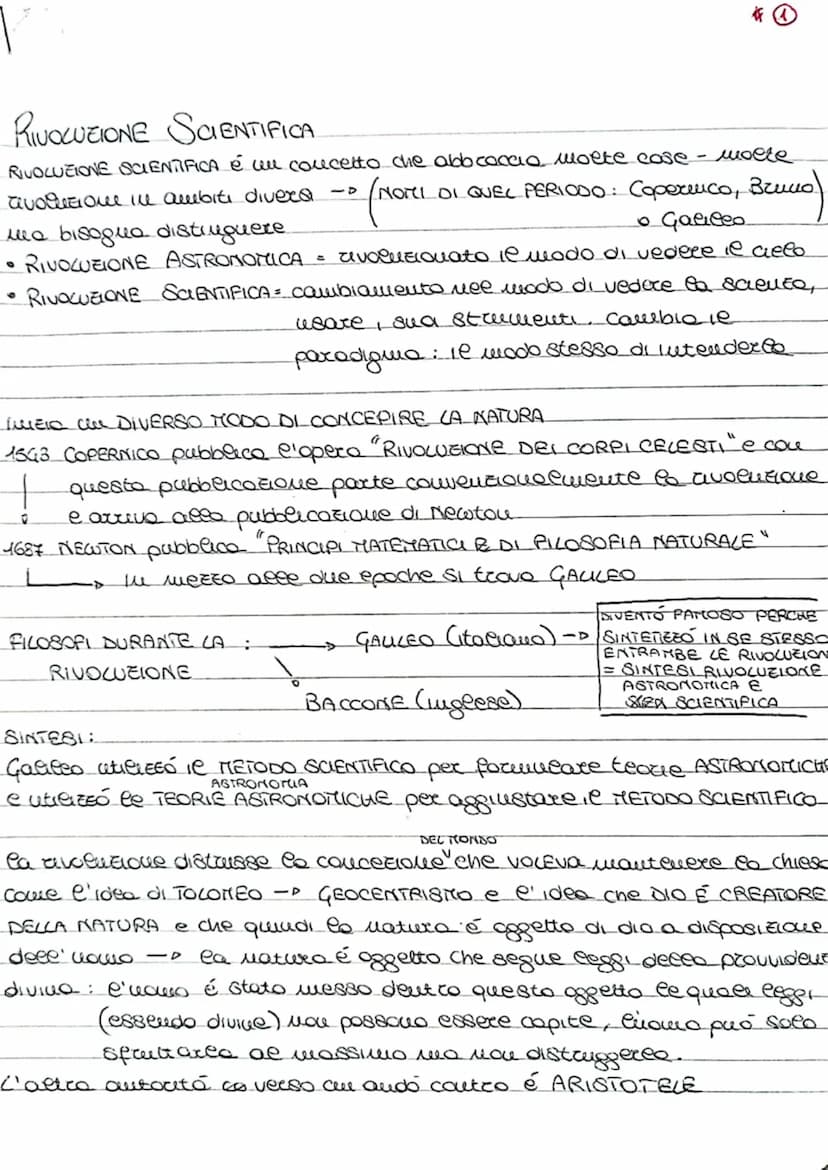 * 1
RIVOLUZIONE SCIENTIFICA
RIVOLUZIONE SCIENTIFICA é un concetto che abbraccia molte cose - molte
rivoluzioni in ambiti diversi → (NOMI DI QUEL PERIODO: Copernico, Bruno
ma bisogna distinguere o Galileo)
• RIVOLUZIONE ASTRONOMICA = rivoluzionato il modo di vedere il cielo
• RIVOLUZIONE SCIENTIFICA = cambiamento nel modo di vedere la scienza,
usare i suoi strumenti. Cambia il
paradigma: il modo stesso di intenderla
inizia un DIVERSO MODO DI CONCEPIRE LA NATURA
1543 COPERNICO pubblica l'opera "RIVOLUZIONE DEI CORPI CELESTI" e con
questa pubblicazione parte convenzionalmente la rivoluzione
e arriva alla pubblicazione di Newton
1687 NEWTON pubblica "PRINCIPI MATEMATICI E DI FILOSOFIA NATURALE"
→ in mezzo alle due epoche si trova GALILEO
FILOSOFI DURANTE LA : → GALILEO (italiano) →
RIVOLUZIONE
BACCONE (inglese)
DIVENTÓ FAMOSO PERCHE
SINTETIZZÓ IN SE STESSO
ENTRAMBE LE RIVOLUZION
= SINTESI RIVOLUZIONE
ASTRONOMICA E
SCIENTIFICA
SINTESI:
Galileo utilizzó il METODO SCIENTIFICO per formulare teorie ASTRONOMICHE
ASTRONOMIA
e utilizzó le TEORIE ASTRONOMICHE per aggiustare il METODO SCIENTIFICO
DEL MONDO
la rivoluzione distrusse la concezione che VOLEVA mantenere la chiesa
come l'idea di TOLOMEO → GEOCENTRISMO e l'idea che DIO É CREATORE
DELLA NATURA e che quindi la natura é oggetto di dio a disposizione
dell'uomo → la natura é oggetto che segue leggi della provviden
divina : l'uomo é stato messo dentro questo oggetto le quali leggi
(essendo divine) non possono essere capite, l'uomo puó solo
sfruttarla al massimo ma non distruggerla.
L'altra autoritá verso cui andó contro é ARISTOTELE